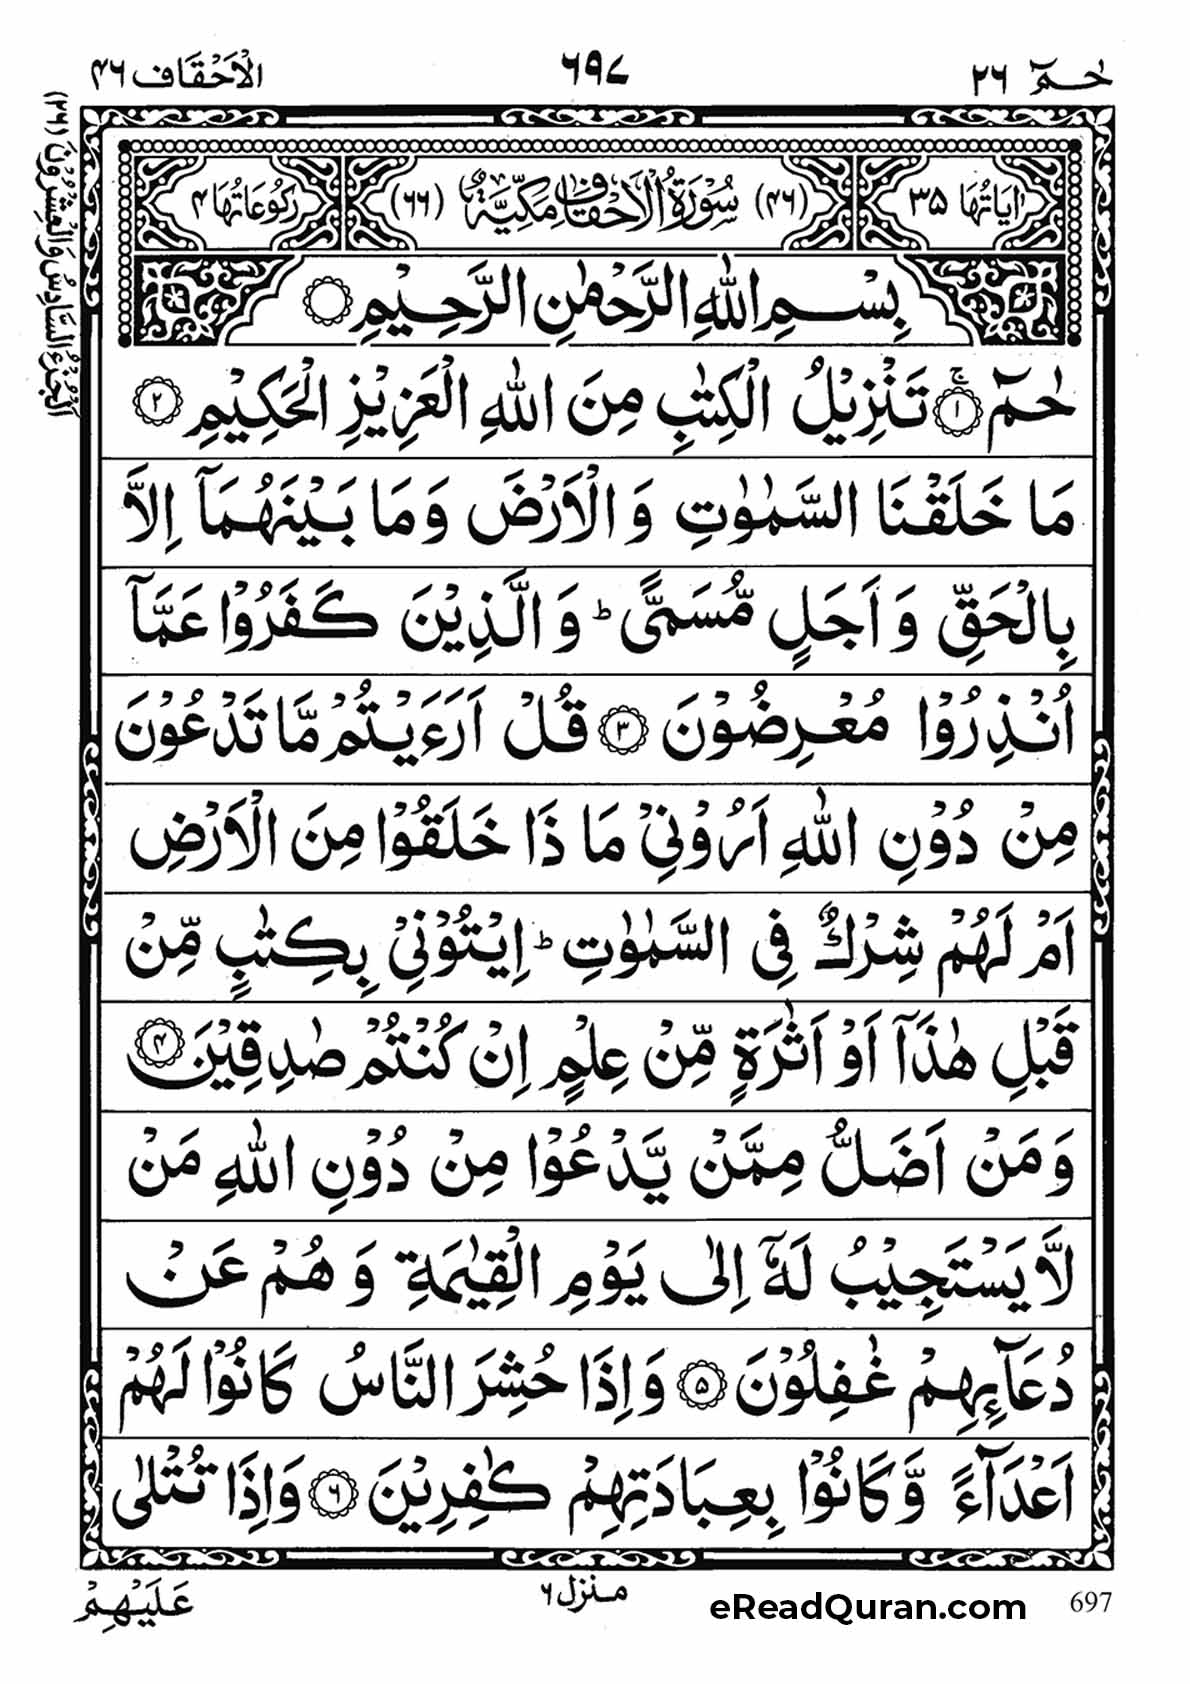 حٰمٓ ٢٦
٦٩٧
الْاَحْقَاف ٤٦
اٰيَاتُهَا ٣٥
(٤٦) سُوْرَةُ الْاَحْقَافِ مَكِّيَّةٌ (٦٦)
رُكُوْعَاتُهَا ٤
بِسْمِ اللّٰهِ الرَّحْمٰنِ الرَّحِيْمِ
حٰمٓ ۚ ١ تَنْزِيْلُ الْكِتٰبِ مِنَ اللّٰهِ الْعَزِيْزِ الْحَكِيْمِ ٢
مَا خَلَقْنَا السَّمٰوٰتِ وَ الْاَرْضَ وَ مَا بَيْنَهُمَاۤ اِلَّا
بِالْحَقِّ وَ اَجَلٍ مُّسَمًّى ؕ وَ الَّذِيْنَ كَفَرُوْا عَمَّاۤ
اُنْذِرُوْا مُعْرِضُوْنَ ٣ قُلْ اَرَءَيْتُمْ مَّا تَدْعُوْنَ
مِنْ دُوْنِ اللّٰهِ اَرُوْنِيْ مَا ذَا خَلَقُوْا مِنَ الْاَرْضِ
اَمْ لَهُمْ شِرْكٌ فِي السَّمٰوٰتِ ؕ اِيْتُوْنِيْ بِكِتٰبٍ مِّنْ
قَبْلِ هٰذَاۤ اَوْ اَثٰرَةٍ مِّنْ عِلْمٍ اِنْ كُنْتُمْ صٰدِقِيْنَ ٤
وَ مَنْ اَضَلُّ مِمَّنْ يَّدْعُوْا مِنْ دُوْنِ اللّٰهِ مَنْ
لَّا يَسْتَجِيْبُ لَهٗۤ اِلٰى يَوْمِ الْقِيٰمَةِ وَ هُمْ عَنْ
دُعَآىِٕهِمْ غٰفِلُوْنَ ٥ وَ اِذَا حُشِرَ النَّاسُ كَانُوْا لَهُمْ
اَعْدَآءً وَّ كَانُوْا بِعِبَادَتِهِمْ كٰفِرِيْنَ ٦ وَ اِذَا تُتْلٰى
عَلَيْهِمْ
منزل ٦
eReadQuran.com
697
اَلْجُزْءُ السَّادِسُ وَالْعِشْرُوْنَ (٢٦)